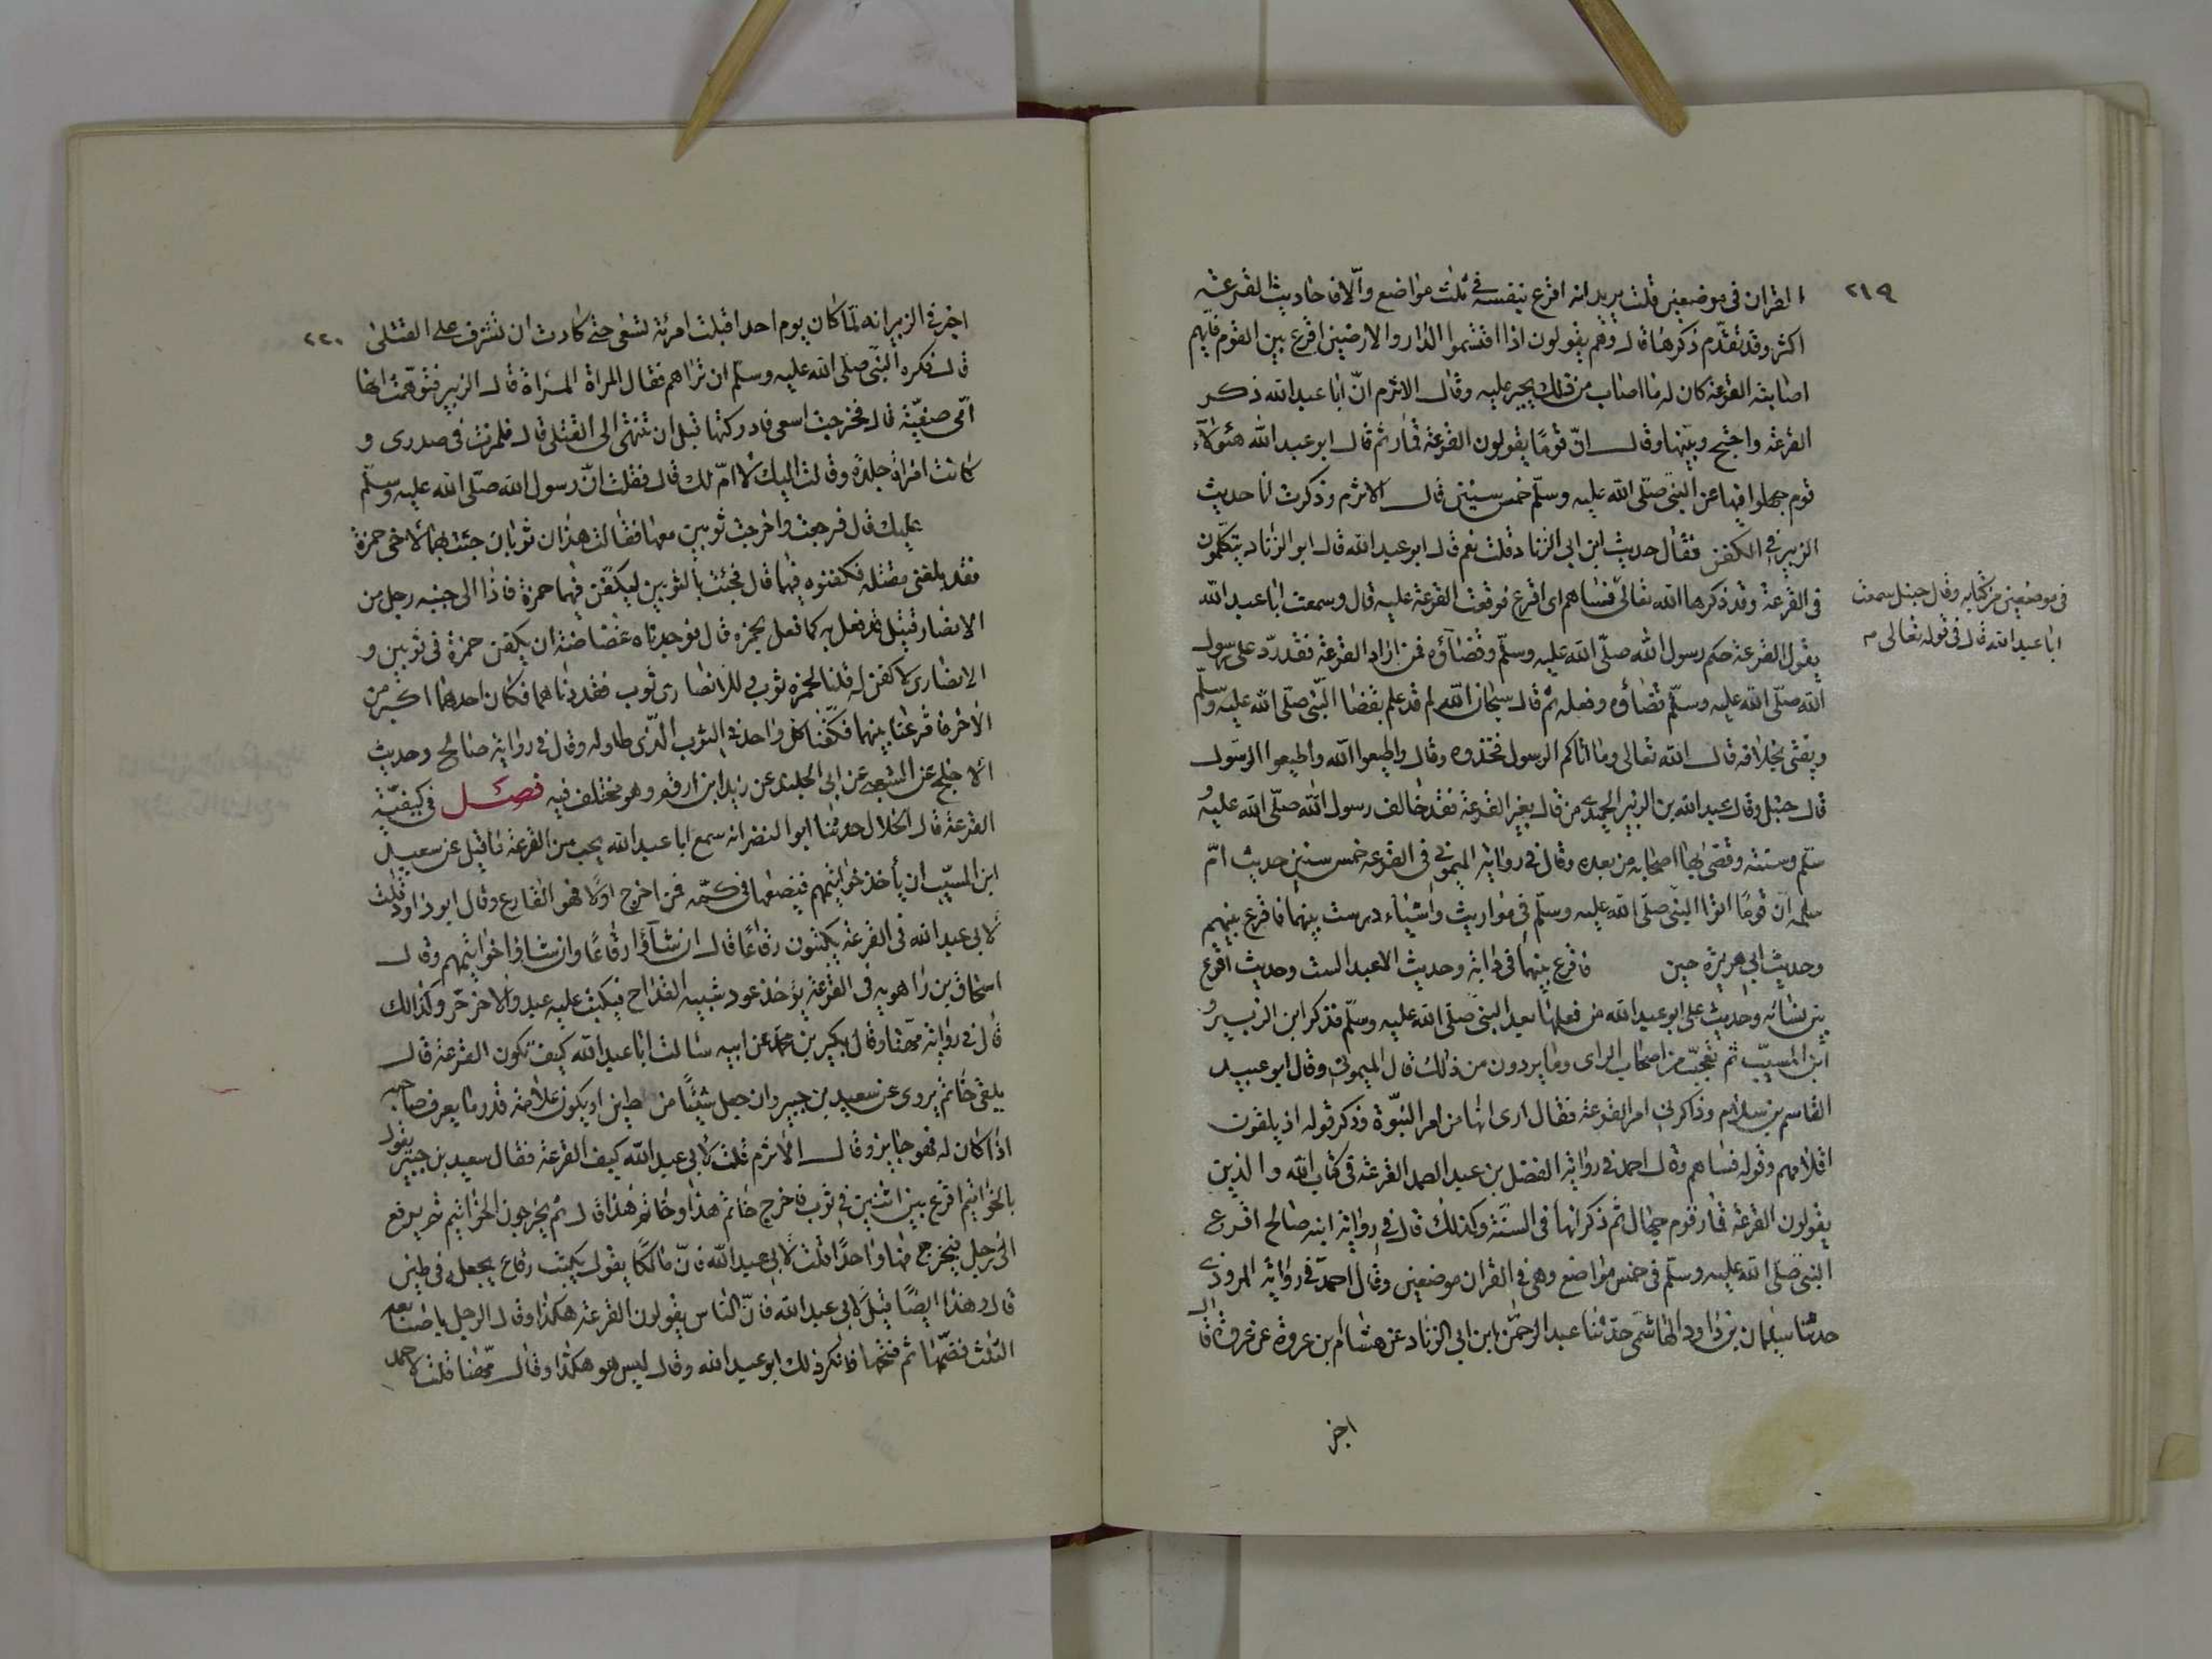 ٢١٩
القران فى موضعين قلت يريد انه اقرع بنفسه فى ثلث مواضع والّا فاحاديث القرعة
اكثر وقد تقدّم ذكرها قال وهم يقولون اذا اقتسموا الدار والارضين اقرع بين القوم فايهم
اصابته القرعة كان له ما اصاب من ذلك يجبر عليه وقال الاثرم انّ ابا عبد الله ذكر
القرعة واحتج وبيّنها وقال انّ قومًا يقولون القرعة قمار ثم قال ابو عبد الله هؤلآء
قوم جهلوا فيها عن النبى صلّى الله عليه وسلّم خمس سنين قال الاثرم وذكرت انا حديث
الزبير فى الكفن فقال حديث ابن ابى الزناد قلت نعم قال ابو عبد الله قال ابو الزناد يتكلّمون
فى القرعة وقد ذكرها الله تعالىّ فساهم اى اقرع فوقعت القرعة عليه قال وسمعت ابا عبد الله
يقول القرعة حكم رسول الله صلّى الله عليه وسلّم وقضآؤه فمن اراد القرعة فقد ردّ على رسول
الله صلّى الله عليه وسلّم قضاؤه وفعله ثم قال سبحان الله لم قد علم بقضا النّبى صلّى الله عليه وسلّم
ويفتى بخلافه قال الله تعالى وما اتاكم الرسول فخذوه وقال واطيعوا الله واطيعوا الرسول
قال حنبل وقال عبد الله بن الزبير الحميدى من قال بغير القرعة فقد خالف رسول الله صلّى الله عليه و
سلّم وسنته وقضى بها اصحابه من بعده وقال فى رواية الميمونى فى القرعه خمس سنين حديث امّ
سلمه انّ قومًا اتوا النبى صلّى الله عليه وسلّم فى مواريث واشياء درست بينهما فاقرع بينهم
وحديث ابى هريرة حين فاقرع بينهما فى دابة وحديث الاعبد الست وحديث اقرع
بين نسائه وحديث على ابو عبد الله من فعلها بعد النبى صلّى الله عليه وسلّم فذكر ابن الزبير و
ابن المسيّب ثم تعجّب من اصحاب الراى وما يردون من ذلك قال الميمونى وقال ابو عبيد
القاسم بن سلام وذاكرنى امر القرعة فقال ارى انها من امر النبوّة وذكر قوله اذ يلقون
اقلامهم وقوله فساهم وقال احمد فى رواية الفضل بن عبد الصمد القرعة فى كتاب الله والذين
يقولون القرعة قمار قوم جهال ثم ذكر انها فى السنّة وكذلك قال فى رواية ابنه صالح اقرع
النبى صلّى الله عليه وسلّم فى خمس مواضع وهى فى القران موضعين وقال احمد فى رواية المروذى
حدثنا سليمان بن داود الهاشمى حدثنا عبد الرحمن بن ابى الزناد عن هشام بن عروة عن عروة قال
اخبر
فى موضعين من كتابه وقال حنبل سمعت
ابا عبد الله قال فى قوله تعالى
٢٢٠
اخبرنى الزبير انه لمّا كان يوم احد اقبلت امرئة تسعى حتى كادت ان تشرف على القتلى
قال فكره النّبى صلّى الله عليه وسلّم ان تراهم فقال المراة المراة قال الزبير فتوهّمت انها
امّى صفيّة قال فخرجت اسعى فادركتها قبل ان تنتهى الى القتلى قال فلمرنت فى صدرى و
كانت امراة جلدة وقالت اليك لا امّ لك قال فقلت انّ رسول الله صلّى الله عليه وسلّم
عليك قال فرجعت واخرجت ثوبين معها فقالت هذان ثوبان جئت بهما لاخى حمزة
فقد بلغنى مقتله فكفنوه فيهما قال فجئت بالثوبين ليكفّن فيهما حمزة فاذا الى جنبه رجل من
الانصار قتيل قد فعل به كما فعل بحمزه قال فوجدنا ه غضاضة ان يكفن حمزة فى ثوبين و
الانصارى لا كفن له قلنا لحمزه ثوب وللانصارى ثوب فقدرناهما فكان احدهما اكبر من
الاخر فاقرعنا بينهما فكفّنا كل واحد فى الثوب الّذى طار له وقال فى رواية صالح وحديث
الاجلح عن الشعبى عن ابى الخليل عن زيد ابن ارقم وهو مختلف فيه فصل فى كيفيّة
القرعة قال الخلال حدثنا ابو النضر انه سمع ابا عبد الله يحب من القرعة ما قيل عن سعيد
ابن المسيّب ان يأخذ خواتيمهم فيضعها فى كمّه فمن اخرج اولًا فهو القارع وقال ابو داود قلت
لابى عبد الله فى القرعة يكتبون رقاعًا قال ان شآؤا رقاعًا وان شاؤا خواتيمهم وقال
اسحاق بن راهويه فى القرعة يؤخذ عود شبيه القداح فيكتب عليه عبد والاخر حرّ وكذالك
قال فى رواية مهنّا وقال بكير بن محمد عن ابيه سالت ابا عبد الله كيف تكون القرعة قال
يلقى خاتم يروى عن سعيد بن جبير وان جعل شيئًا من طين او يكون علامة قدر ما يعرف صاحبه
اذا كان له فهو جايز وقال الاثرم قلت لابى عبد الله كيف القرعة فقال سعيد بن جبير يقول
بالخواتيم اقرع بين اثنين فى ثوب فاخرج خاتم هذا وخاتم هذا قال ثم يخرجون الخواتيم ثم يرفع
الى رجل فيخرج منها واحدًا قلت لابى عبد الله فانّ مالكًا يقول يكتب رقاع يجعل فى طين
قال وهذا ايضًا قيل لابى عبد الله فانّ الناس يقولون القرعة هكذا وقال الرجل باصابعه
الثلث فضمّها ثم فتحها فانكر ذلك ابو عبد الله وقال ليس هو هكذا وقال مهنا قلت لاحمد